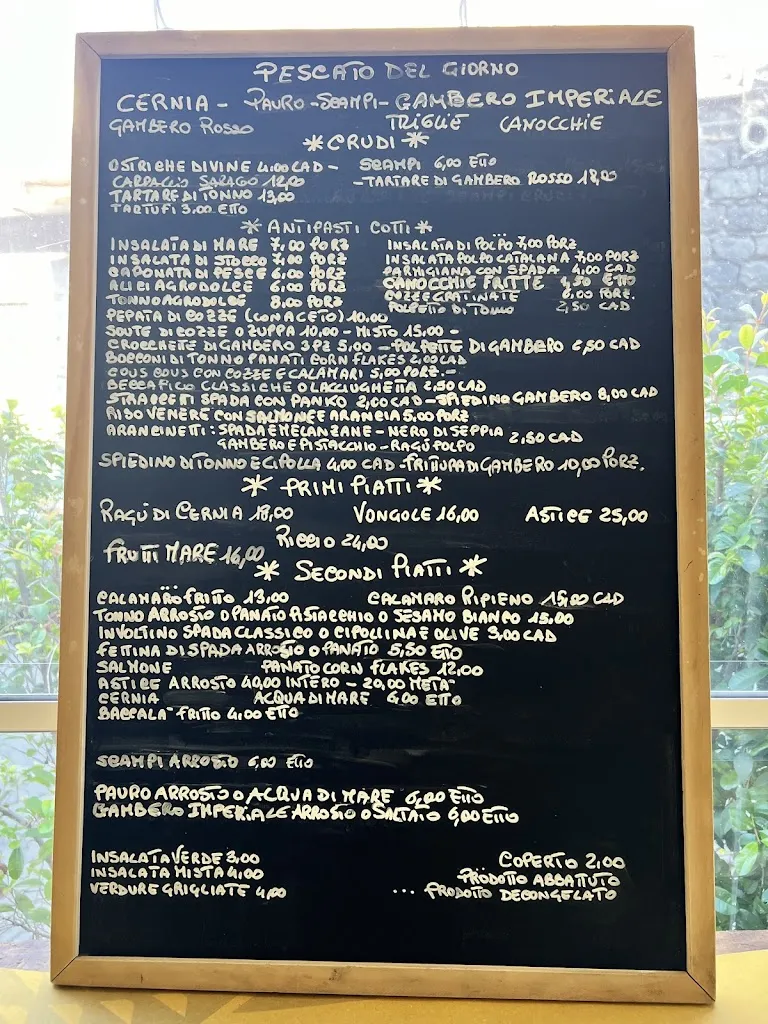 PESCATO DEL GIORNO
CERNIA - PAURO - SCAMPI - GAMBERO IMPERIALE
GAMBERO ROSSO TRIGLIE CANOCCHIE
* CRUDI *
OSTRICHE DIVINE 4,00 CAD - SCAMPI 6,00 ETTO
CARPACCIO SARAGO 12,00 - TARTARE DI GAMBERO ROSSO 18,00
TARTARE DI TONNO 13,00
TARTUFI 3,00 ETTO
* ANTIPASTI COTTI *
INSALATA DI MARE 7,00 PORZ INSALATA DI POLPO 7,00 PORZ
INSALATA DI STOCCO 7,00 PORZ INSALATA POLPO CATALANA 7,00 PORZ
CAPONATA DI PESCE 6,00 PORZ PARMIGIANA CON SPADA 4,00 CAD
ALICI AGRODOLCE 6,00 PORZ CANOCCHIE FRITTE 4,50 ETTO
TONNO AGRODOLCE 8,00 PORZ COZZE GRATINATE 6,00 PORZ.
PEPATA DI COZZE (CON ACETO) 10,00 POLPETTO DI TONNO 2,50 CAD
SOUTE DI COZZE O ZUPPA 10,00 - MISTO 15,00 -
CROCCHETE DI GAMBERO 3 PZ 5,00 - POLPETTE DI GAMBERO 2,50 CAD
BOCCONI DI TONNO PANATI CORN FLAKES 2,00 CAD
COUS COUS CON COZZE E CALAMARI 5,00 PORZ. -
BECCAFICO CLASSICHE O L'ACCIUGHETTA 2,50 CAD
STRACCETTI SPADA CON PANKO 2,00 CAD - SPIEDINO GAMBERO 8,00 CAD
RISO VENERE CON SALMONE E ARANCIA 5,00 PORZ
ARANCINETTI: SPADA E MELANZANE - NERO DI SEPPIA
GAMBERO E PISTACCHIO - RAGÙ POLPO 2,50 CAD
SPIEDINO DI TONNO E CIPOLLA 4,00 CAD - FRITTURA DI GAMBERO 10,00 PORZ.
* PRIMI PIATTI *
RAGÙ DI CERNIA 18,00 VONGOLE 16,00 ASTICE 25,00
FRUTTI MARE 16,00 RICCIO 24,00
* SECONDI PIATTI *
CALAMARO FRITTO 13,00 CALAMARO RIPIENO 15,00 CAD
TONNO ARROSTO O PANATO PISTACCHIO O SESAMO BIANCO 15,00
INVOLTINO SPADA CLASSICO O CIPOLLINA E OLIVE 3,00 CAD
FETTINA DI SPADA ARROSTO O PANATO 5,50 ETTO
SALMONE PANATO CORN FLAKES 12,00
ASTICE ARROSTO 40,00 INTERO - 20,00 METÀ
CERNIA ACQUA DI MARE 6,00 ETTO
BACCALÀ FRITTO 4,00 ETTO
SCAMPI ARROSTO 6,00 ETTO
PAURO ARROSTO O ACQUA DI MARE 6,00 ETTO
GAMBERO IMPERIALE ARROSTO O SALTATO 6,00 ETTO
INSALATA VERDE 3,00 COPERTO 2,00
INSALATA MISTA 4,00 PRODOTTO ABBATTUTO
VERDURE GRIGLIATE 4,00 ... PRODOTTO DECONGELATO